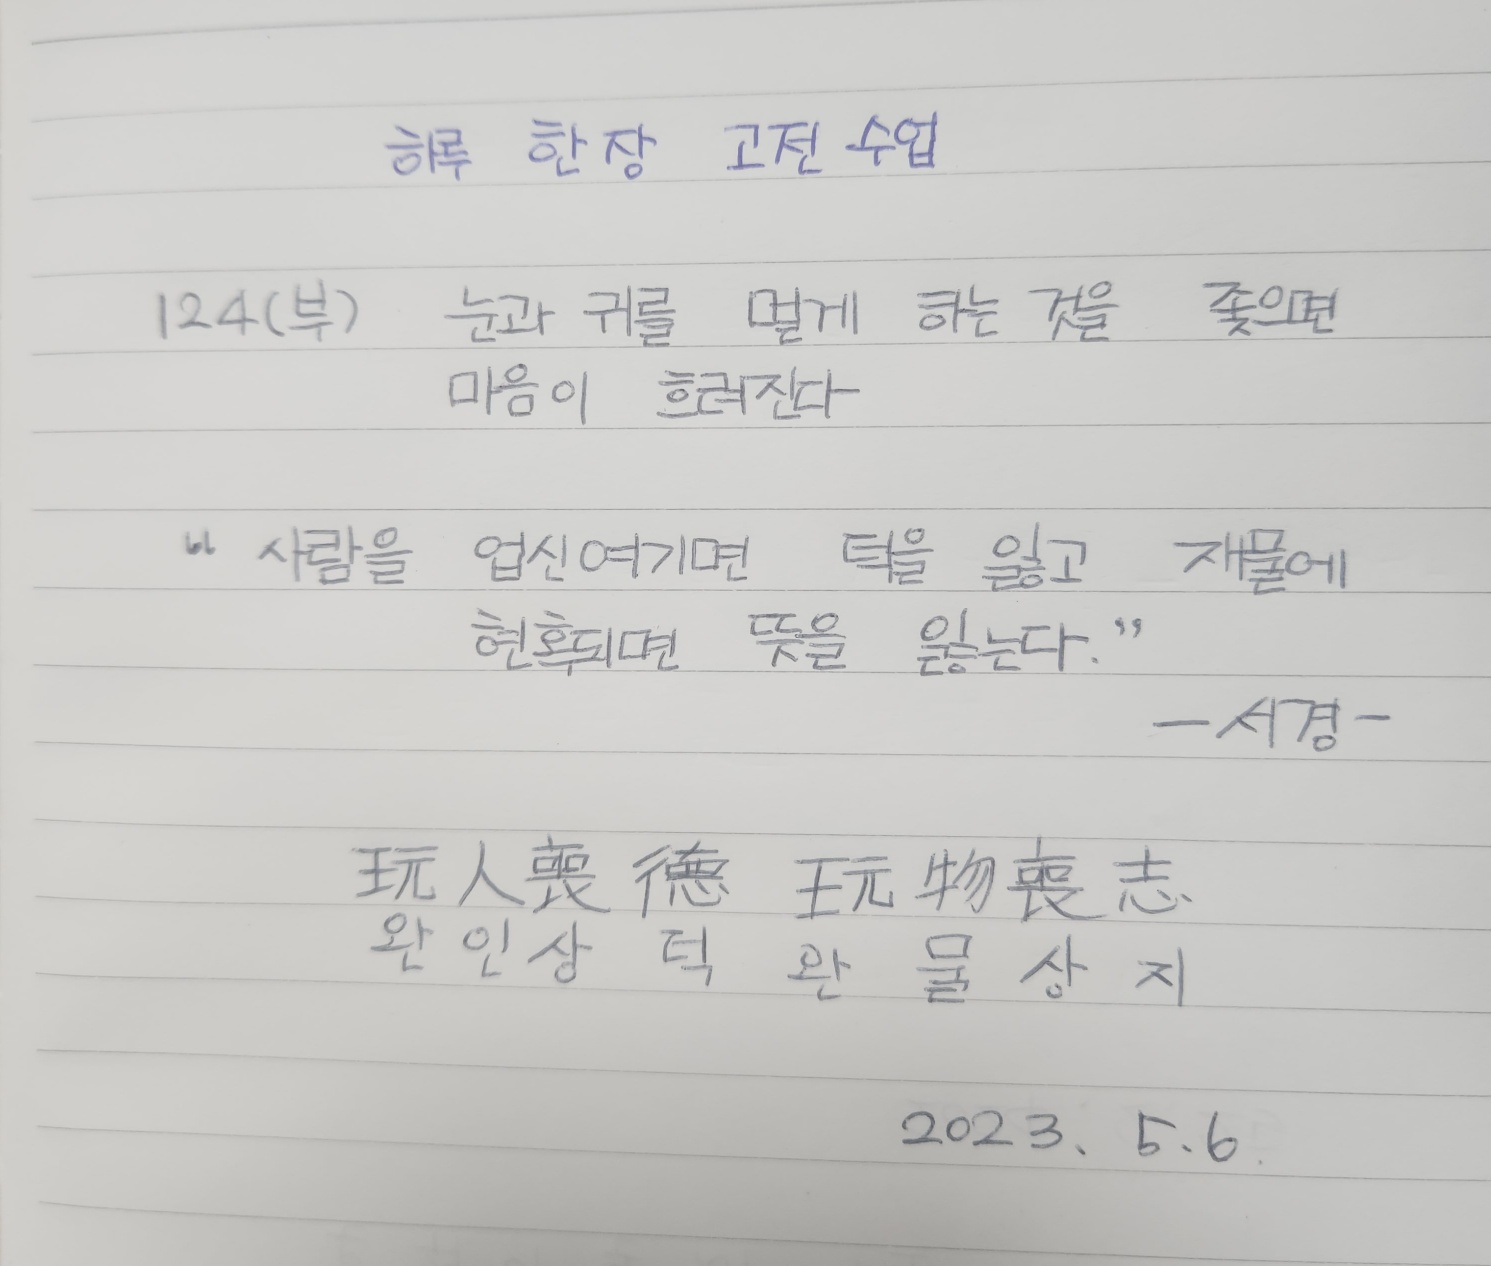 하루 한 장 고전 수업
124(부) 눈과 귀를 멀게 하는 것을 좇으면
마음이 흐려진다
“사람을 업신여기면 덕을 잃고 재물에
현혹되면 뜻을 잃는다.”
-서경-
玩人喪德 玩物喪志
완인상덕 완물상지
2023. 5.6.